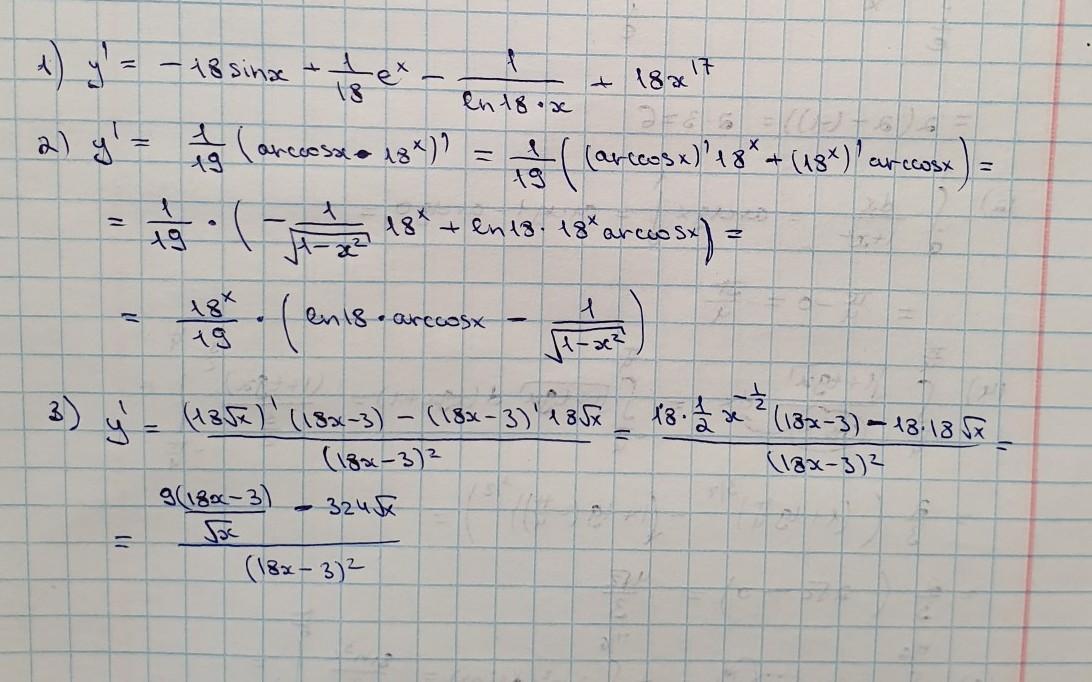 1) y' = -18 sinx + 1/18 e^x - 1/(ln18·x) + 18x^17
2) y' = 1/19 (arccosx · 18^x)' = 1/19 ((arccosx)' 18^x + (18^x)' arccosx) =
= 1/19 · (- 1/√(1-x²) 18^x + ln18 · 18^x arccosx) =
= 18^x/19 · (ln18 · arccosx - 1/√(1-x²))
3) y' = ((18√x)' (18x-3) - (18x-3)' 18√x)/(18x-3)² = (18 · 1/2 x^(-1/2) (18x-3) - 18·18√x)/(18x-3)² =
= (9(18x-3)/√x - 324√x)/(18x-3)²